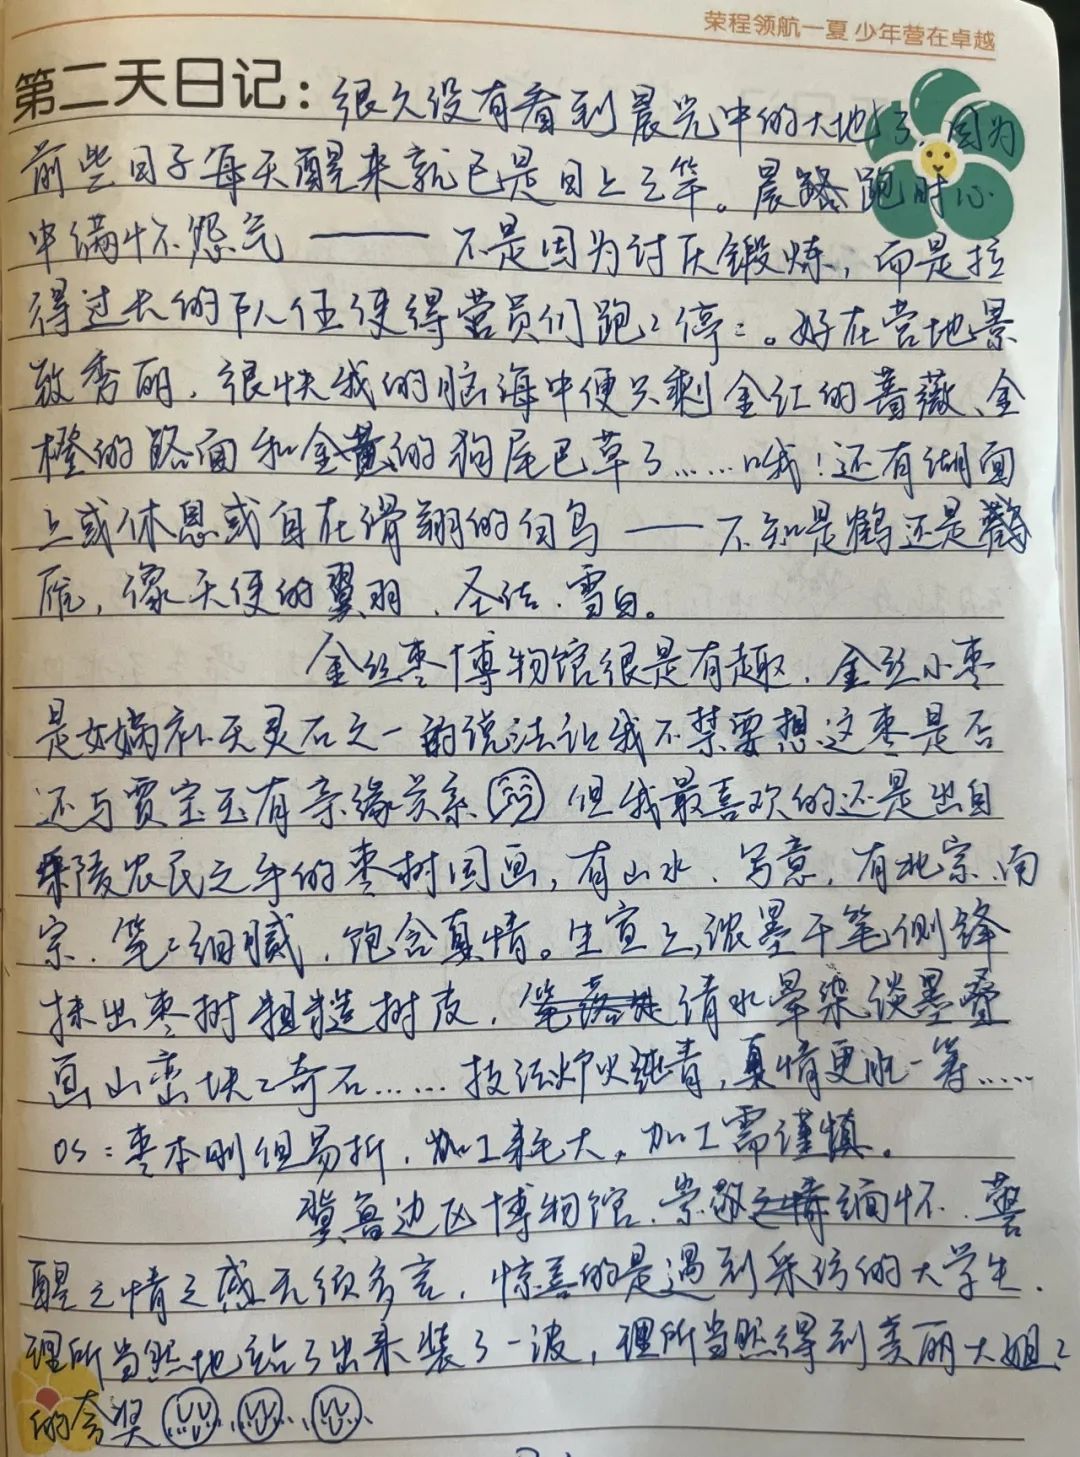 荣程领航一夏 少年营在卓越
第二天日记：很久没有看到晨光中的大地了，因为
前些日子每天醒来就已是日上三竿。晨跑时心
中满怀怨气——不是因为讨厌锻炼，而是拉
得过长的队伍使得营员们跑：停：。好在营地景
致秀丽，很快我的脑海中便只剩金红的蔷薇、金
橙的路面和金黄的狗尾巴草了……哦！还有湖面
上或休息或自在滑翔的白鸟——不知是鹤还是
雁，像天使的翼羽，圣洁、雪白。
金丝枣博物馆很是有趣，金丝小枣
是女娲补天灵石之一的说法让我不禁要想这枣是否
还与贾宝玉有亲缘关系 但我最喜欢的还是出自
乐陵农民之手的枣树国画，有山水、写意，有北宗、南
宗，笔：细腻，饱含真情。生宣上，浓墨干笔侧锋
抹出枣树粗糙树皮，清水晕染淡墨叠
画山峦块：奇石……技法炉火纯青，真情更胜一筹……
OS：枣木刚但易折，加工耗大，加工需谨慎。
冀鲁边区博物馆，崇敬缅怀、警
醒之情之感无须多言，惊喜的是遇到采访的大学生，
理所当然地站了出来装了一波，理所当然得到美丽大姐：
的夸奖